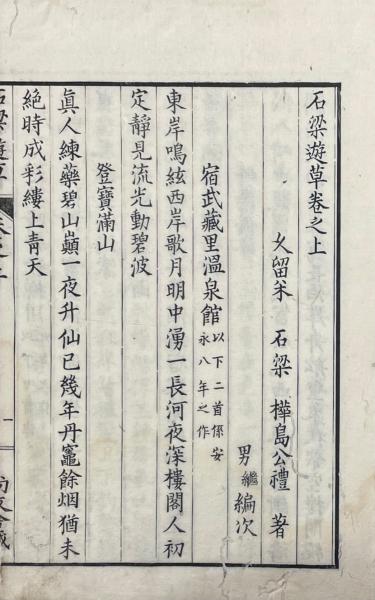 石梁遊草卷之上
久留米 石梁 樺島公禮 著
男 繼 編次
宿武藏里溫泉館 以下二首係安永八年之作
東岸鳴絃西岸歌月明中湧一長河夜深樓閣人初
定靜見流光動碧波
登寶滿山
眞人練藥碧山巓一夜升仙已幾年丹竈餘烟猶未
絕時成彩縷上青天
石梁遊草